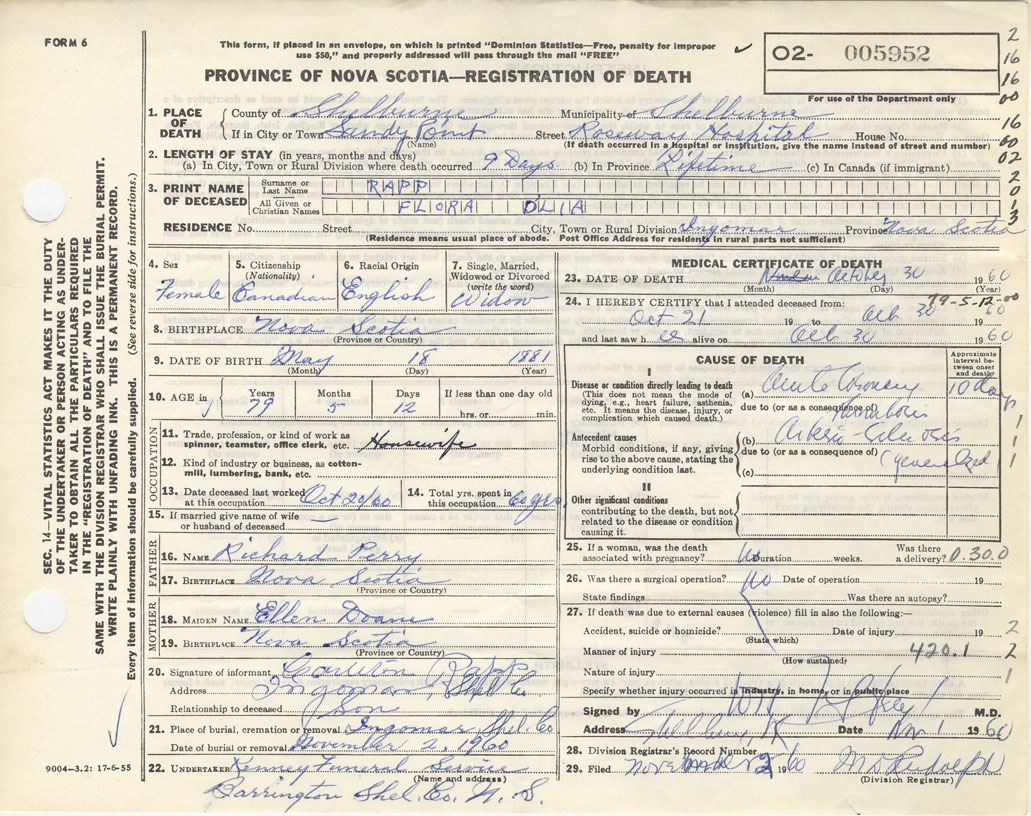 FORM 6
This form, if placed in an envelope, on which is printed "Dominion Statistics—Free, penalty for improper
use $50," and properly addressed will pass through the mail "FREE"
O2- 005952
For use of the Department only
PROVINCE OF NOVA SCOTIA—REGISTRATION OF DEATH
2
16
16
00
16
00
02
2
0
1
3
1. PLACE OF DEATH
County of Shelburne Municipality of Shelburne
If in City or Town Sandy Point Street Roseway Hospital House No.
(Name) (If death occurred in a hospital or institution, give the name instead of street and number)
2. LENGTH OF STAY (in years, months and days)
(a) In City, Town or Rural Division where death occurred 9 Days (b) In Province Lifetime (c) In Canada (if immigrant)
3. PRINT NAME OF DECEASED
Surname or Last Name RAPP
All Given or Christian Names FLORA DLIA
RESIDENCE No. Street City, Town or Rural Division Ingomar Province Nova Scotia
(Residence means usual place of abode. Post Office Address for residents in rural parts not sufficient)
4. Sex Female
5. Citizenship (Nationality) Canadian
6. Racial Origin English
7. Single, Married, Widowed or Divorced (write the word) Widow
8. BIRTHPLACE Nova Scotia
(Province or Country)
9. DATE OF BIRTH May 18 1881
(Month) (Day) (Year)
10. AGE in Years 79 Months 5 Days 12 If less than one day old hrs. or min.
OCCUPATION
11. Trade, profession, or kind of work as spinner, teamster, office clerk, etc. Housewife
12. Kind of industry or business, as cotton-mill, lumbering, bank, etc.
13. Date deceased last worked at this occupation Oct 20/60
14. Total yrs. spent in this occupation 60 yrs
15. If married give name of wife or husband of deceased —
FATHER
16. NAME Richard Perry
17. BIRTHPLACE Nova Scotia
(Province or Country)
MOTHER
18. MAIDEN NAME Ellen Doane
19. BIRTHPLACE Nova Scotia
(Province or Country)
20. Signature of informant Rapp
Address Ingomar, Shel Co
Relationship to deceased Son
21. Place of burial, cremation or removal Ingomar Shel. Co
Date of burial or removal November 2, 1960
22. UNDERTAKER Kenney Funeral Service
(Name and address)
Barrington Shel. Co. N. S.
MEDICAL CERTIFICATE OF DEATH
23. DATE OF DEATH October 30 1960
(Month) (Day) (Year)
79-5-12-00
24. I HEREBY CERTIFY that I attended deceased from:
Oct 21 19 to Oct 30 1960
and last saw h er alive on Oct 30 1960
CAUSE OF DEATH
Approximate interval between onset and death
I
Disease or condition directly leading to death
(This does not mean the mode of dying, e.g., heart failure, asthenia, etc. It means the disease, injury, or complication which caused death.)
(a) Acute Coronary 10 days
due to (or as a consequence of)
Thrombosis
Antecedent causes
Morbid conditions, if any, giving rise to the above cause, stating the underlying condition last.
(b) Arterio-Sclerosis
due to (or as a consequence of)
(generalized)
(c)
1
1
1
II
Other significant conditions contributing to the death, but not related to the disease or condition causing it.
25. If a woman, was the death associated with pregnancy? No Duration weeks. Was there a delivery? 0.30.0
26. Was there a surgical operation? No Date of operation 19
State findings Was there an autopsy?
27. If death was due to external causes (violence) fill in also the following:—
Accident, suicide or homicide? Date of injury 19 2
(State which)
Manner of injury 420.1 2
(How sustained)
Nature of injury 1
Specify whether injury occurred in industry, in home, or in public place
Signed by M.D.
Address Shelburne Date Nov 1 1960
28. Division Registrar's Record Number
29. Filed November 2 1960
(Division Registrar)
SEC. 14—VITAL STATISTICS ACT MAKES IT THE DUTY
OF THE UNDERTAKER OR PERSON ACTING AS UNDER-
TAKER TO OBTAIN ALL THE PARTICULARS REQUIRED
IN THE "REGISTRATION OF DEATH" AND TO FILE THE
SAME WITH THE DIVISION REGISTRAR WHO SHALL ISSUE THE BURIAL PERMIT.
WRITE PLAINLY WITH UNFADING INK. THIS IS A PERMANENT RECORD.
Every item of information should be carefully supplied. (See reverse side for instructions.)
9004-3.2: 17-6-55